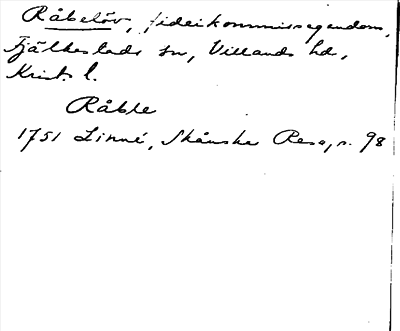 Råbelöv, fideikommissegendom,
Fjälkestads sn, Villands hd,
Krist. l.
Råble
1751 Linné, Skånska Resa, s. 98